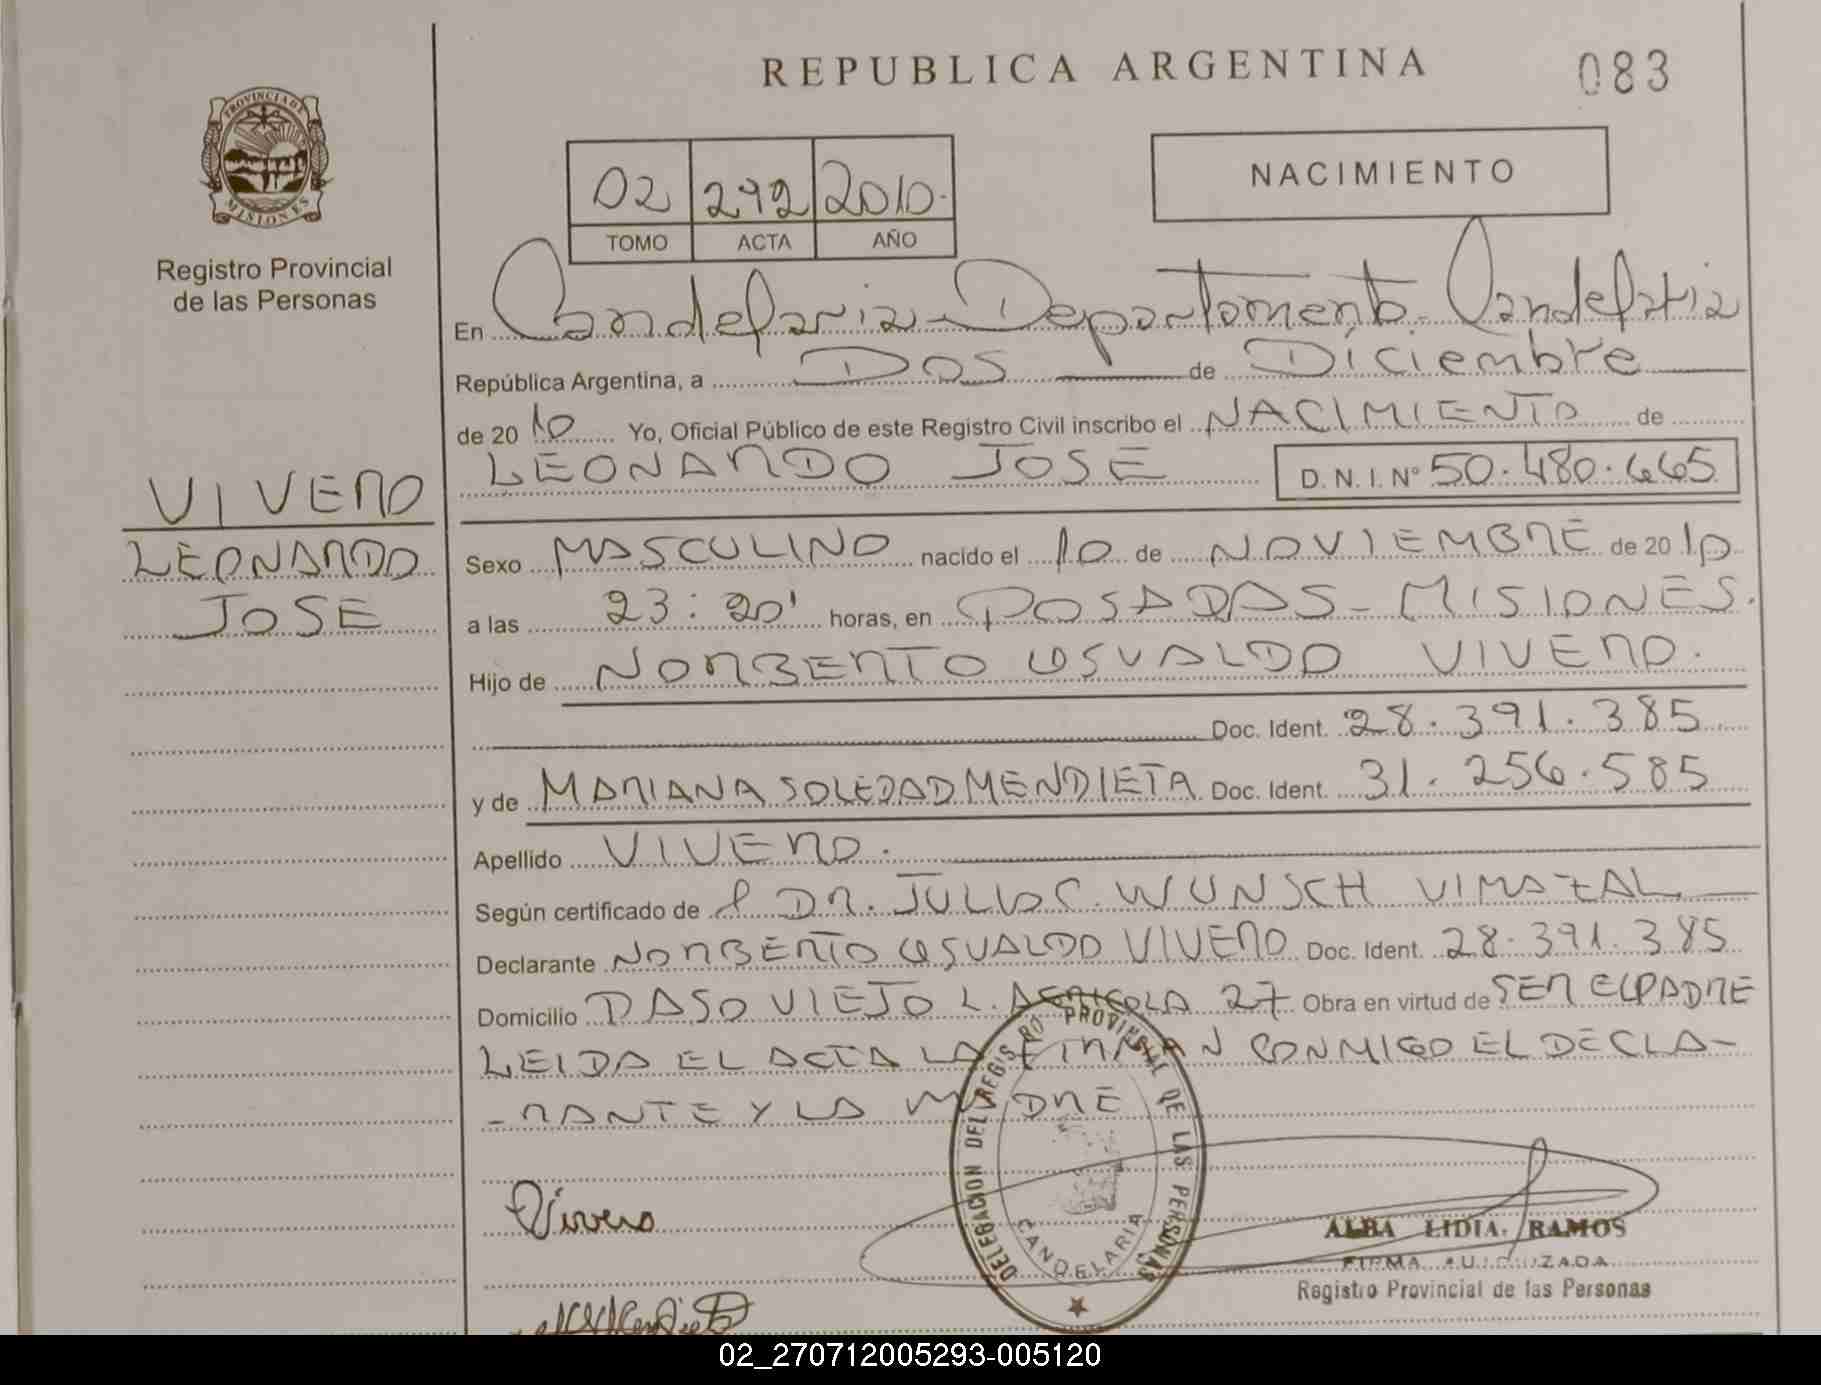 REPUBLICA ARGENTINA
083
PROVINCIA DE
MISIONES
Registro Provincial
de las Personas
02 292 2010.
TOMO ACTA AÑO
NACIMIENTO
En Candelaria - Departamento Candelaria
República Argentina, a DOS de Diciembre
de 20 10 Yo, Oficial Público de este Registro Civil inscribo el NACIMIENTO de
LEONARDO JOSE D.N.I. Nº 50.480.665
VIVERO
LEONARDO
JOSE
Sexo MASCULINO nacido el 10 de NOVIEMBRE de 20 10
a las 23:20' horas, en POSADAS - MISIONES.
Hijo de NORBERTO OSVALDO VIVERO.
Doc. Ident. 28.391.385
y de MARIANA SOLEDAD MENDIETA Doc. Ident. 31.256.585
Apellido VIVERO.
Según certificado de DR. JULIO C. WUNSCH VIMAZAL
Declarante NORBERTO OSVALDO VIVERO Doc. Ident. 28.391.385
Domicilio PASO VIEJO L. AGRICOLA 27 Obra en virtud de SER EL PADRE
LEIDA EL ACTA LA FIRMAN CONMIGO EL DECLA-
-RANTE Y LA MADRE
DELEGACION DEL REGISTRO PROVINCIAL DE LAS PERSONAS
CANDELARIA
Vivero
ALBA LIDIA RAMOS
FIRMA AUTORIZADA
Registro Provincial de las Personas
02_270712005293-005120